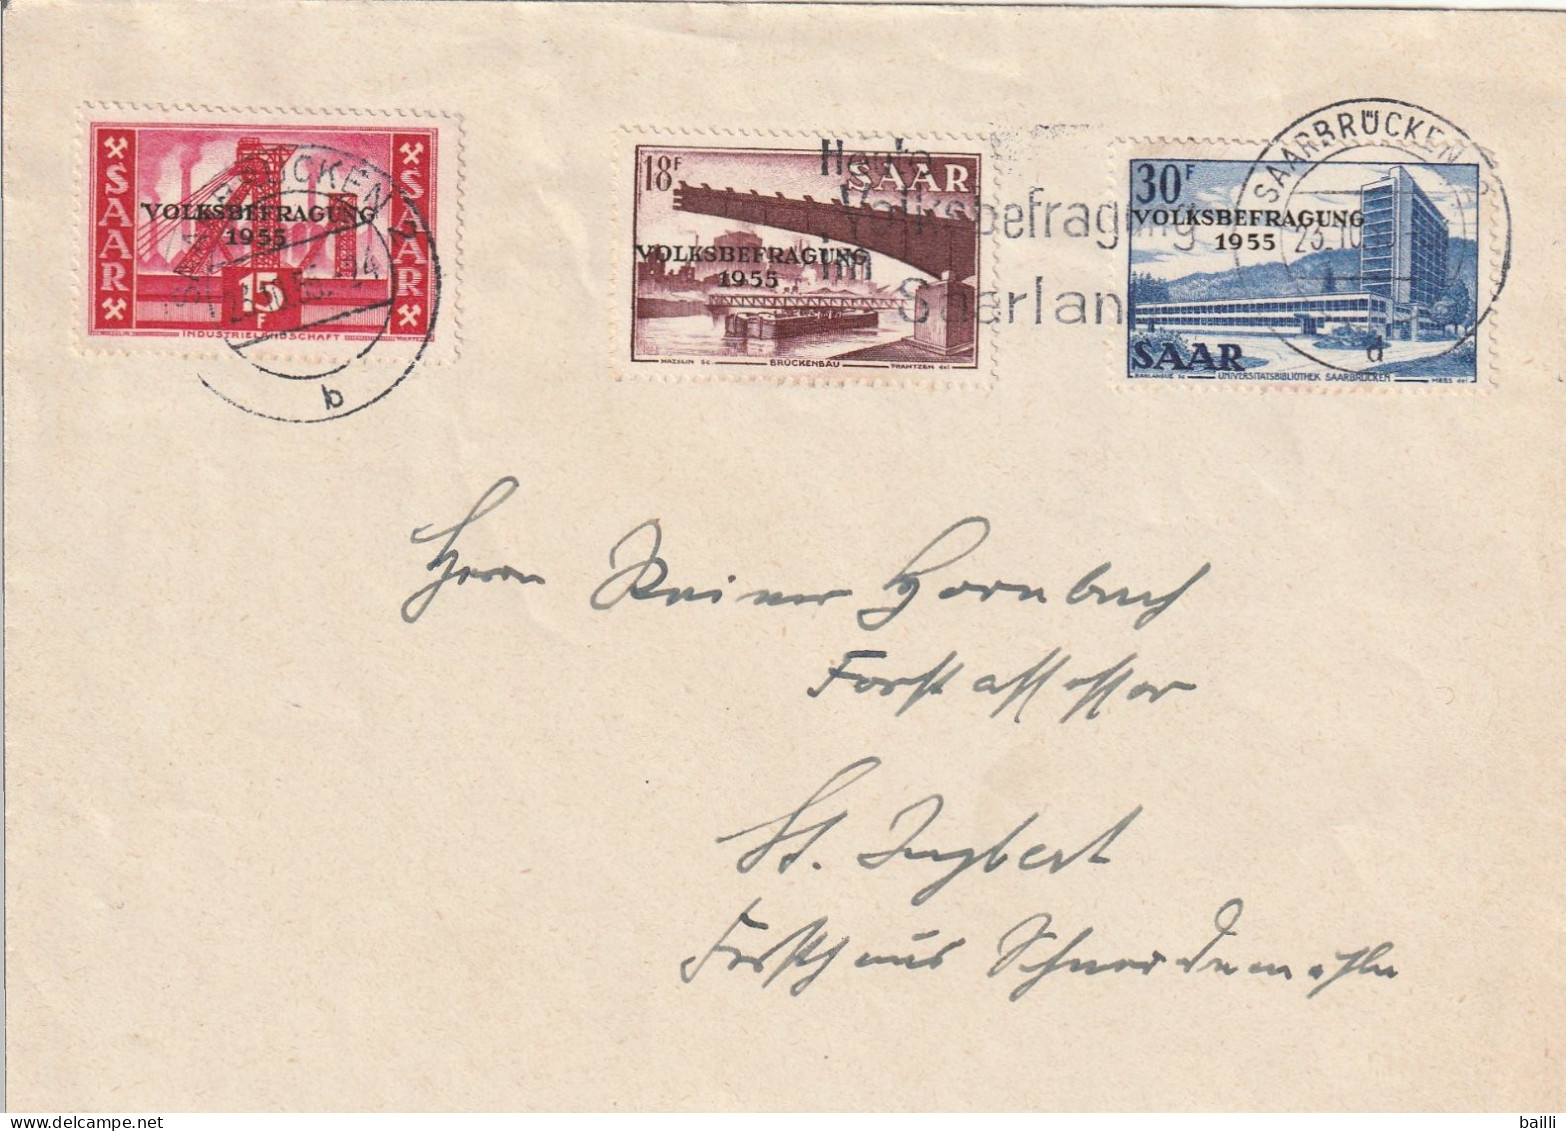 SAAR
SAAR
VOLKSBEFRAGUNG
1955
15
F
INDUSTRIELANDSCHAFT
SAARBRÜCKEN 2
b
18F
SAAR
VOLKSBEFRAGUNG
1955
HAZELIN SC.
BRÜCKENBAU
FRANTZEN del
Heute
Volksbefragung
im
Saarland
30F
VOLKSBEFRAGUNG
1955
SAAR
UNIVERSITÄTSBIBLIOTHEK SAARBRÜCKEN
MEES del
SAARBRÜCKEN 2
23.10.
d
Herrn Rainer Hornbach
Forstassessor
St. Ingbert
Forsthaus
bailli